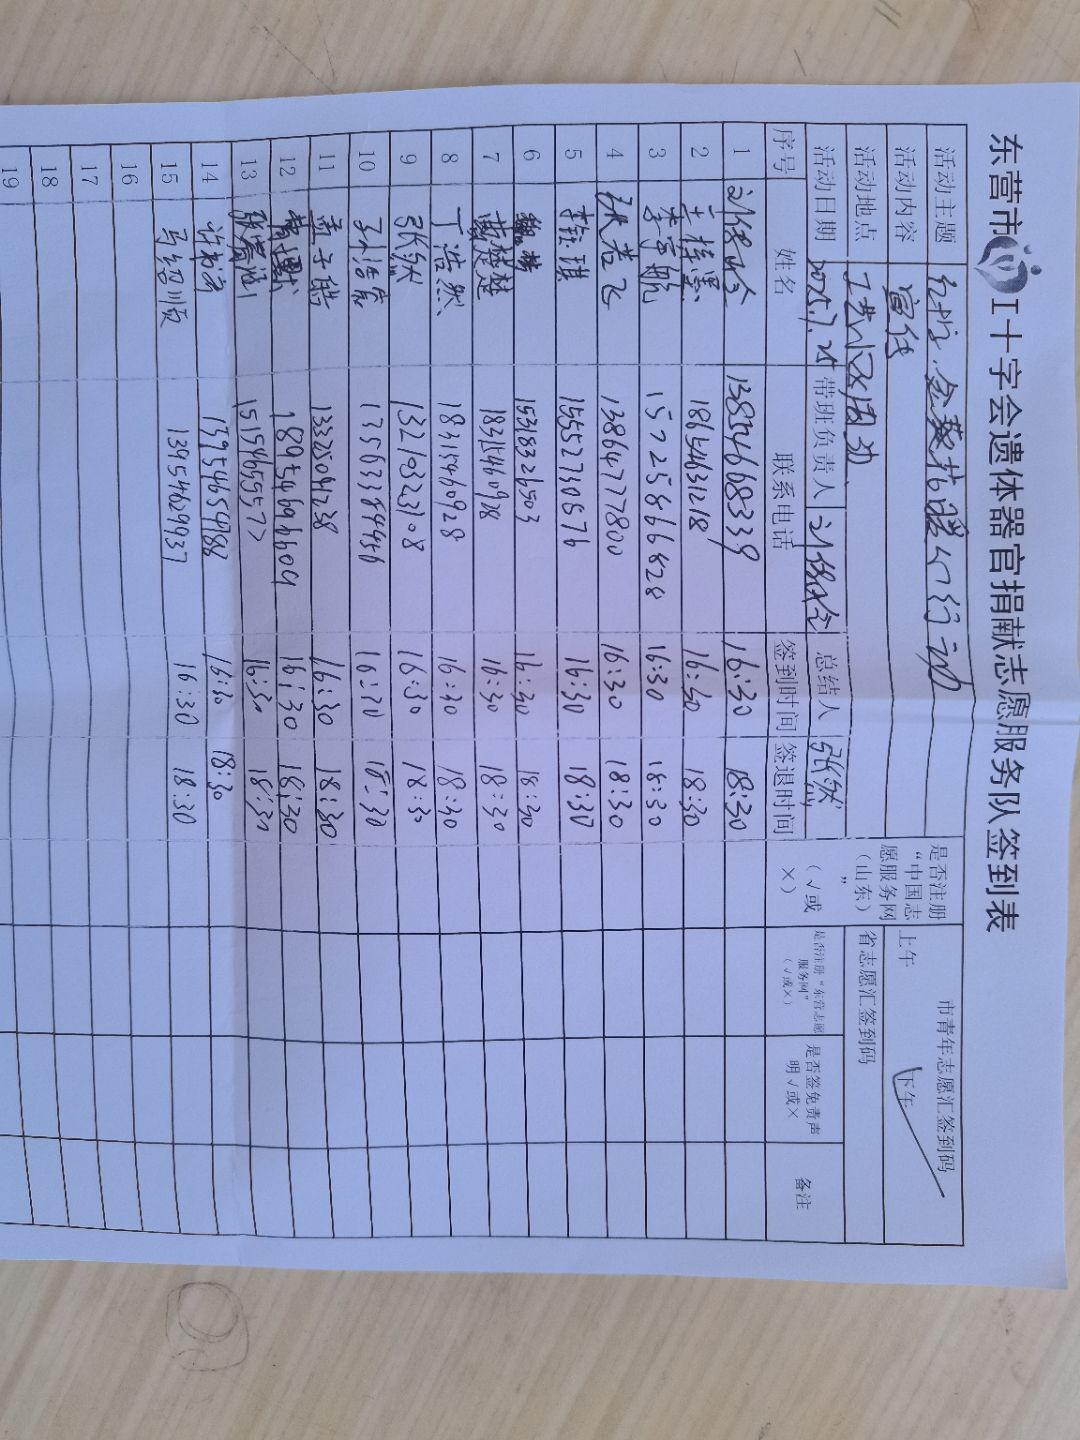 东营市 十字会遗体器官捐献志愿服务队签到表
活动主题 红十字·金葵花暖心行动 是否注册“中国志愿服务网”（山东） 市青年志愿汇签到码
活动内容 宣传 上午 下午
活动地点 省志愿汇签到码
活动日期 2025.7.25 带班负责人 总结人 张斌
序号 姓名 联系电话 签到时间 签退时间 （√或×） 是否注册“东营志愿服务网”（√或×） 是否签免责声明√或× 备注
1 13854668339 16:30 18:30
2 王梓墨 18654631218 16:30 18:30
3 李宇航 15725866828 16:30 18:30
4 张若飞 13864777800 16:30 18:30
5 李钰琪 15552730676 16:30 18:30
6 15318326503 16:30 18:30
7 戴楚楚 18315460928 16:30 18:30
8 丁浩然 18315460928 16:30 18:30
9 张斌 13210323108 16:30 18:30
10 17563384446 16:30 18:30
11 孟子皓 13325091238 16:30 18:30
12 18954696609 16:30 18:30
13 15154655577 16:30 18:30
14 16:30 18:30
15 13954629937 16:30 18:30
16
17
18
19